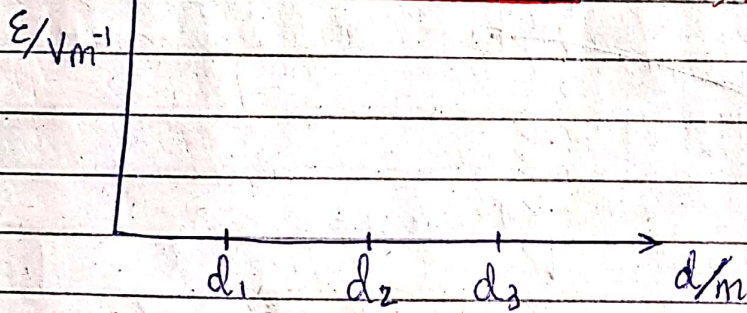 ε/Vm⁻¹
d₁ d₂ d₃ d/m